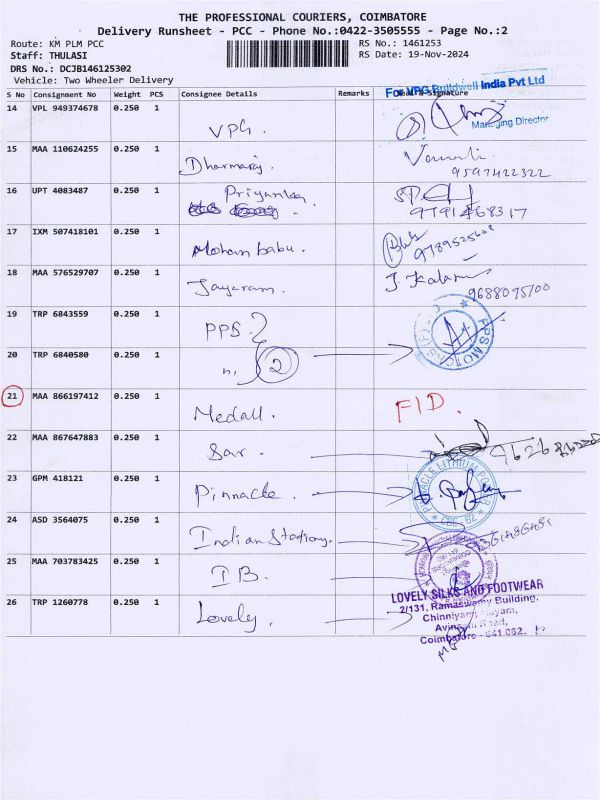 THE PROFESSIONAL COURIERS, COIMBATORE
Delivery Runsheet - PCC - Phone No.:0422-3505555 - Page No.:2
Route: KM PLM PCC
RS No.: 1461253
Staff: THULASI
RS Date: 19-Nov-2024
DRS No.: DCJB146125302
Vehicle: Two Wheeler Delivery
S No Consignment No Weight PCS Consignee Details Remarks
For VPG Buildwell India Pvt Ltd
14 VPL 949374678 0.250 1 VPG.
Managing Director
15 MAA 110624255 0.250 1 Dharmaraj.
9597422322
16 UPT 4083487 0.250 1 Priyanka.
9791468317
17 IXM 507418101 0.250 1 Mohan babu.
18 MAA 576529707 0.250 1 Jayaram.
9688075700
19 TRP 6843559 0.250 1 PPS
PPS MOTORS
20 TRP 6840580 0.250 1 2
21 MAA 866197412 0.250 1 Medall. FID.
22 MAA 867647883 0.250 1 Sar.
23 GPM 418121 0.250 1 Pinnacle.
PINNACLE LITHIUM
CBE-62
24 ASD 3564075 0.250 1 Indian Stadiony.
25 MAA 703783425 0.250 1 IB.
26 TRP 1260778 0.250 1 Lovely.
LOVELY SILKS AND FOOTWEAR
2/131, Ramaswamy Building,
Chinniyampalayam,
Avinashi Road,
Coimbatore - 641 062.